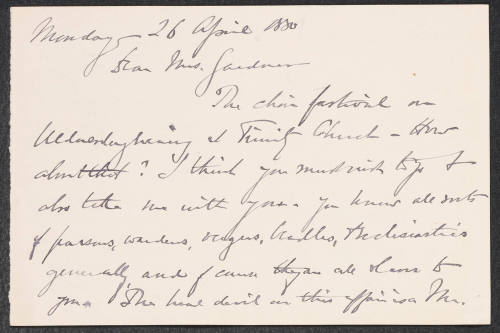 Monday - 26 April 1880
Dear Mrs. Gardner
The choir festival on
Wednesday evening at Trinity Church - How
about that? I think you must wish to go &
also take me with you - You know all sorts
of parsons, wardens, vergers, beadles, & ecclesiastics
generally and of course they are all slaves to
you. The head devil in this affair is a Mr.